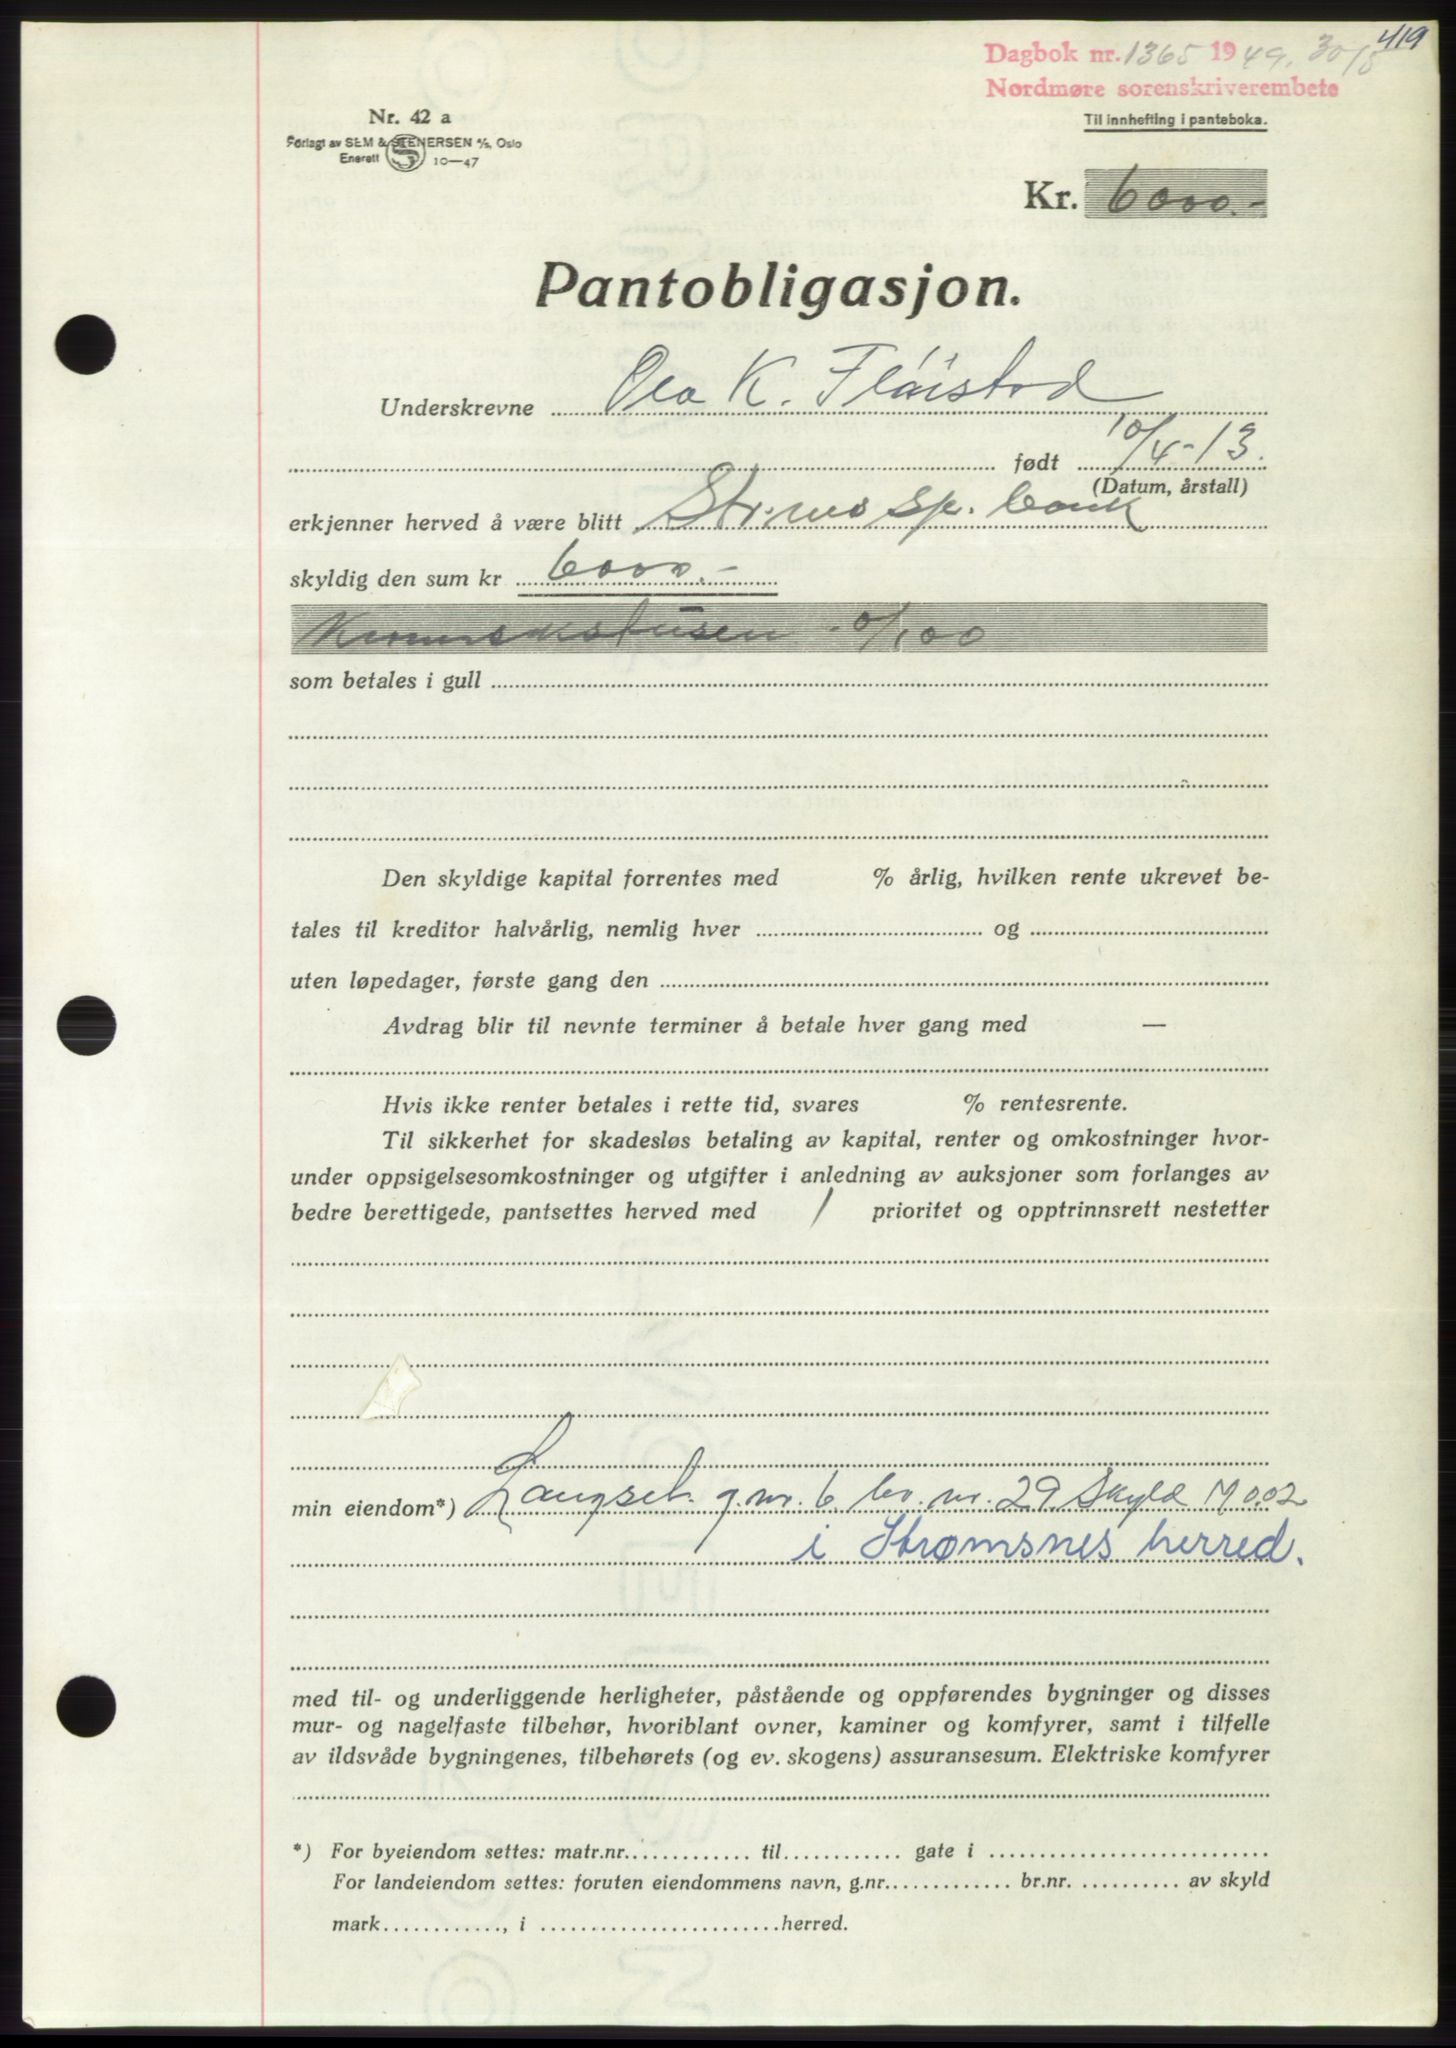 419
Dagbok nr. 1365 1949. 30/5
Nordmøre sorenskriverembete
Nr. 42 a
Forlagt av SEM & STENERSEN A/S, Oslo
Enerett 10—47
Til innhefting i panteboka.
Kr. 6000.-
Pantobligasjon.
Underskrevne Ola K. Fløistad
født 10/4-13.
(Datum, årstall)
erkjenner herved å være blitt Str.nes sp. bank
skyldig den sum kr 6000.-
Kronersekstusen 0/100
som betales i gull
Den skyldige kapital forrentes med % årlig, hvilken rente ukrevet be-
tales til kreditor halvårlig, nemlig hver og
uten løpedager, første gang den
Avdrag blir til nevnte terminer å betale hver gang med —
Hvis ikke renter betales i rette tid, svares % rentesrente.
Til sikkerhet for skadesløs betaling av kapital, renter og omkostninger hvor-
under oppsigelsesomkostninger og utgifter i anledning av auksjoner som forlanges av
bedre berettigede, pantsettes herved med 1 prioritet og opptrinnsrett nestetter
min eiendom*) Langset g.nr. 6 br.nr. 29 Skyld M 0.02
i Strømsnes herred.
med til- og underliggende herligheter, påstående og oppførendes bygninger og disses
mur- og nagelfaste tilbehør, hvoriblant ovner, kaminer og komfyrer, samt i tilfelle
av ildsvåde bygningenes, tilbehørets (og ev. skogens) assuransesum. Elektriske komfyrer
*) For byeiendom settes: matr.nr. til gate i
For landeiendom settes: foruten eiendommens navn, g.nr. br.nr. av skyld
mark , i herred.